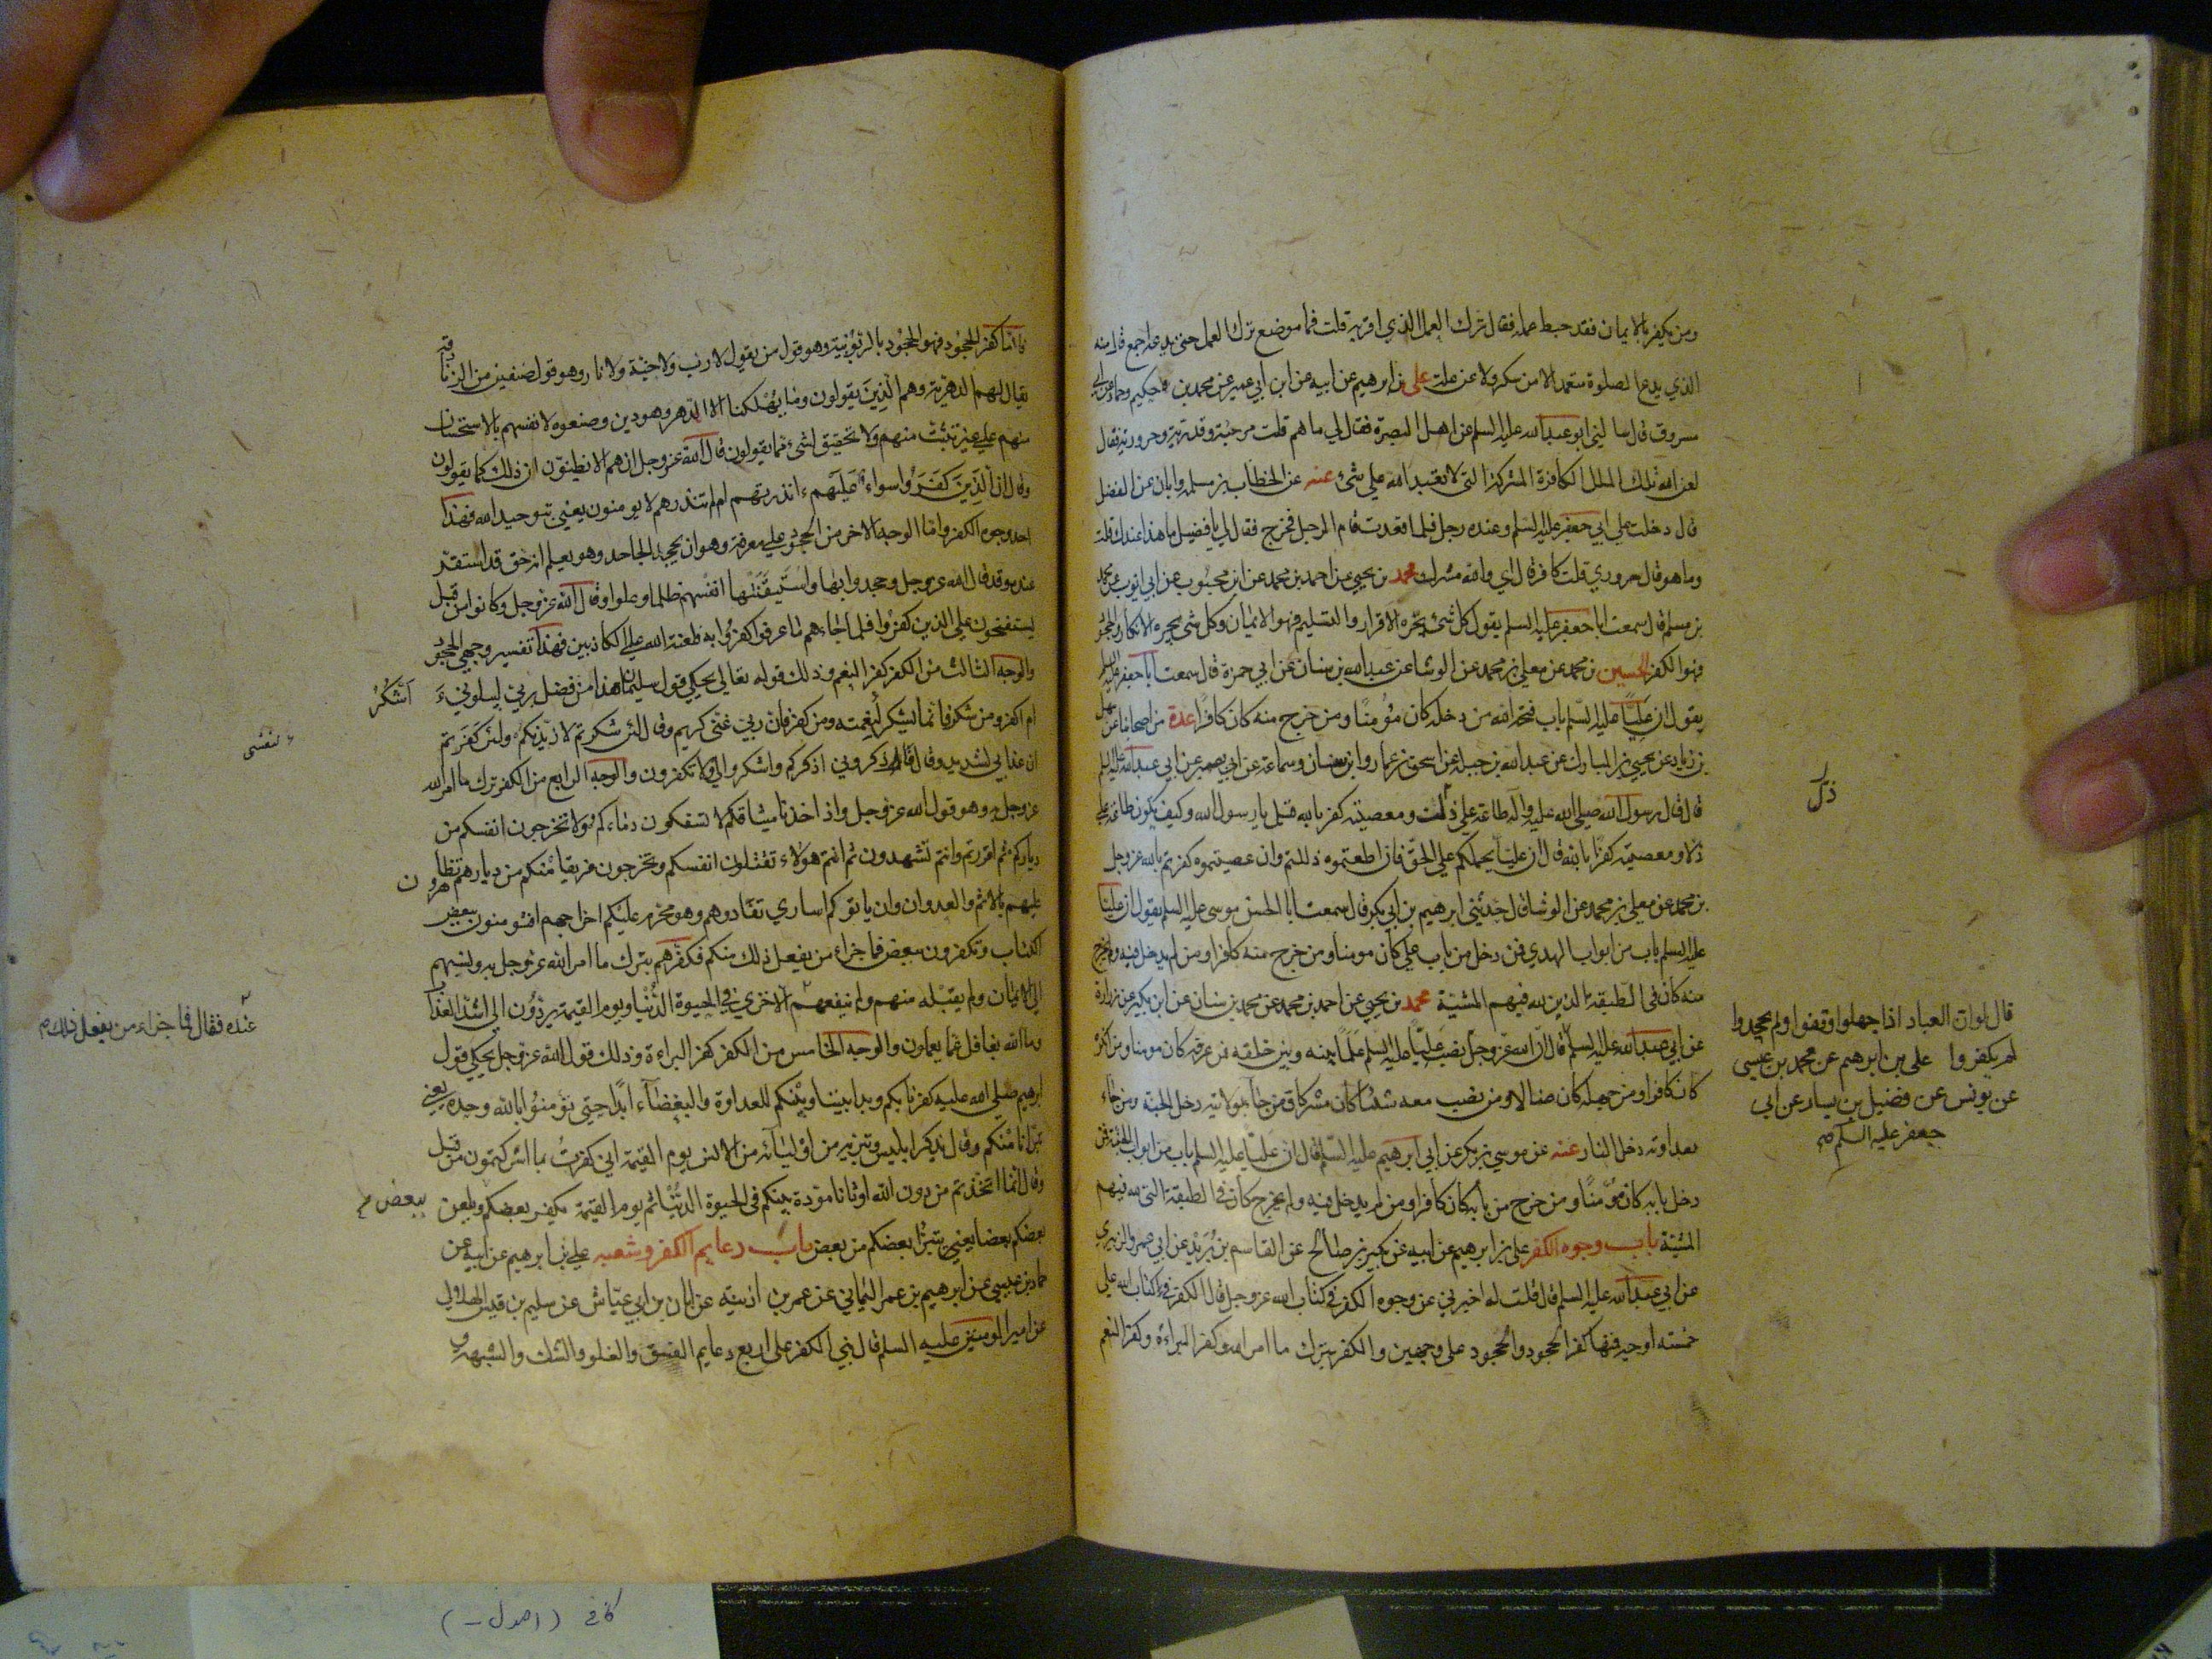 ومن يكفر بالايمان فقد حبط عمله فقال ترك العمل الذي اقر به قلت فما موضع ترك العمل حتى يدعه اجمع قال منه
الذي يدع الصلوة متعمدا لا من سكر ولا عن علت علي بن ابرهيم عن ابيه عن ابن ابي عمير عن محمد بن حكيم وحماد عن ابي
مسروق قال سالني ابو عبدالله عليه السلم عن اهل البصرة فقال لي ما هم قلت مرجئة وقدرية وحرورية فقال
لعن الله تلك الملل الكافرة المشركة التي لا تعبد الله علي شئ عنه عن الخطاب بن مسلمة وابان عن الفضل
قال دخلت علي ابي جعفر عليه السلم وعنده رجل فلما قعدت قام الرجل فخرج فقال لي يا فضيل ما هذا عندك قلت
وما هو قال حروري قلت كافر قال اي والله مشرك محمد بن يحيي عن احمد بن محمد عن ابن محبوب عن ابي ايوب عن محمد
بن مسلم قال سمعت ابا جعفر عليه السلم يقول كل شئ يجره الاقرار والتسليم فهو الايمان وكل شئ يجره الانكار والجحود
فهو الكفر الحسين بن محمد عن معلي بن محمد عن الوشا عن عبدالله بن سنان عن ابي حمزة قال سمعت ابا جعفر عليه السلم
يقول ان عليًا عليه السلم باب فتحه الله من دخله كان مؤمنًا ومن خرج منه كان كافرًا عدة من اصحابنا عن سهل
بن زياد عن يحيي بن المبارك عن عبدالله بن جبلة عن اسحق بن عمار وابن سنان وسماعة عن ابي بصير عن ابي عبدالله عليه السلم
قال قال رسول الله صلي الله عليه واله طاعة علي ذلت ومعصيته كفر بالله قيل يا رسول الله وكيف يكون طاعة علي
ذلا ومعصيته كفرًا بالله قال ان عليًا يحملكم علي الحق فان اطعتموه ذللتم وان عصيتموه كفرتم بالله عز وجل
بن محمد عن معلي بن محمد عن الوشا قال حدثني ابرهيم بن ابي بكر قال سمعت ابا الحسن موسي عليه السلم يقول ان عليًا
عليه السلم باب من ابواب الهدي فمن دخل من باب علي كان مومنا ومن خرج منه كافرا ومن لم يدخل فيه ولم يخرج
منه كان في الطبقة الذين لله فيهم المشية محمد بن يحيي عن احمد بن محمد عن محمد بن سنان عن ابن بكير عن زرارة
عن ابي عبدالله عليه السلم قال ان الله عز وجل نصب عليًا عليه السلم علمًا بينه وبين خلقه فمن عرفه كان مومنا ومن انكره
كان كافرا ومن جهله كان ضالا ومن نصب معه شيئا كان مشركا ومن جآء بولايته دخل الجنة ومن جاء
بعداوته دخل النار عنه عن موسي بن بكر عن ابي ابرهيم عليه السلم قال ان عليًا عليه السلم باب من ابواب الجنة فمن
دخل بابه كان مؤمنًا ومن خرج من بابه كان كافرا ومن لم يدخل فيه ولم يخرج كان في الطبقة التي لله فيهم
المشية باب وجوه الكفر علي بن ابرهيم عن ابيه عن بكير بن صالح عن القاسم بن بريد عن ابي عمرو الزبيري
عن ابي عبدالله عليه السلم قال قلت له اخبرني عن وجوه الكفر في كتاب الله عز وجل قال الكفر في كتاب الله علي
خمسة اوجه فمنها كفر الجحود والجحود علي وجهين والكفر بترك ما امر الله وكفر البراءة وكفر النعم
ذل
قال لو ان العباد اذا جهلوا وقفوا ولم يجحدوا
لم يكفروا علي بن ابرهيم عن محمد بن عيسي
عن يونس عن فضيل بن يسار عن ابي
جعفر عليه السلم
فاما كفر الجحود فهو الجحود بالربوبية وهو قول من يقول لا رب ولا جنة ولا نار وهو قول صنفين من الزنادقة
يقال لهم الدهرية وهم الذين يقولون وما يهلكنا الا الدهر وهو دين وضعوه لانفسهم بالاستحسان
منهم علي غير تثبت منهم ولا تحقيق لشئ مما يقولون قال الله عز وجل ان هم الا يظنون ان ذلك كما يقولون
وقال ان الذين كفروا سواء عليهم ءانذرتهم ام لم تنذرهم لا يومنون يعني بتوحيد الله فهذا
احد وجوه الكفر واما الوجه الاخر من الجحود علي معرفة وهو ان يجحد الجاحد وهو يعلم انه حق قد استقر
عنده وقد قال الله عز وجل وجحدوا بها واستيقنتها انفسهم ظلما وعلوا وقال الله عز وجل وكانوا من قبل
يستفتحون علي الذين كفروا فلما جاءهم ما عرفوا كفروا به فلعنة الله علي الكاذبين فهذا تفسير وجهي الجحود
والوجه الثالث من الكفر كفر النعم وذلك قوله تعالي يحكي قول سليمان هذا من فضل ربي ليبلوني ءَاَشكُرُ
ام اكفر ومن شكر فانما يشكر لنعمته ومن كفر فان ربي غني كريم وقال لئن شكرتم لازيدنكم ولئن كفرتم
ان عذابي لشديد وقال فاذكروني اذكركم واشكروا لي ولا تكفرون والوجه الرابع من الكفر ترك ما امر الله
عز وجل به وهو قول الله عز وجل واذ اخذنا ميثاقكم لا تسفكون دماءكم ولا تخرجون انفسكم من
دياركم ثم اقررتم وانتم تشهدون ثم انتم هولاء تقتلون انفسكم وتخرجون فريقا منكم من ديارهم تظاهرون
عليهم بالاثم والعدوان وان ياتوكم اساري تفادوهم وهو محرم عليكم اخراجهم افتومنون ببعض
الكتاب وتكفرون ببعض فما جزاء من يفعل ذلك منكم فكفرهم بترك ما امر الله عز وجل به ونسبهم
الي الايمان ولم يقبله منهم ولم ينفعهم الا خزي في الحيوة الدنيا ويوم القيمة يردون الي اشد العذاب
وما الله بغافل عما يعملون والوجه الخامس من الكفر كفر البراءة وذلك قول الله عز وجل يحكي قول
ابرهيم صلي الله عليه كفرنا بكم وبدا بيننا وبينكم العداوة والبغضآء ابدًا حتي تؤمنوا بالله وحده يعني
تبرانا منكم وقال يذكر ابليس وتبريه من اوليآئه من الانس يوم القيمة اني كفرت بما اشركتمون من قبل
وقال انما اتخذتم من دون الله اوثانا مودة بينكم في الحيوة الدنيا ثم يوم القيمة يكفر بعضكم ببعض ويلعن
بعضكم بعضا يعني يتبرا بعضكم من بعض باب دعايم الكفر وشعبه علي بن ابرهيم عن ابيه عن
حماد بن عيسي عن ابرهيم بن عمر اليماني عن عمر بن اذينة عن ابان بن ابي عياش عن سليم بن قيس الهلالي
عن امير المومنين عليه السلم قال بني الكفر علي اربع دعايم الفسق والغلو والشك والشبهة
لنفسي
عنده فقال فما جزاء من يفعل ذلك
كافي (اصول –)